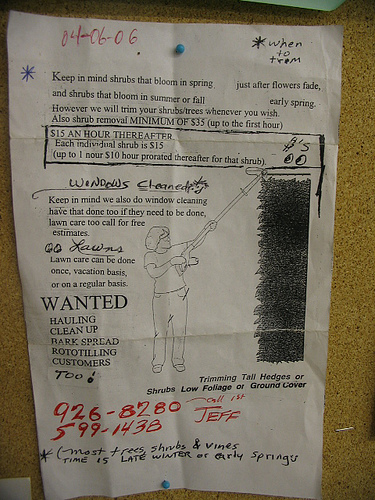 04-06-06
*when
to
trem
*
Keep in mind shrubs that bloom in spring just after flowers fade,
and shrubs that bloom in summer or fall early spring.
However we will trim your shrubs/trees whenever you wish.
Also shrub removal MINIMUM OF $35 (up to the first hour)
$15 AN HOUR THEREAFTER
Each individual shrub is $15
(up to 1 hour $10 hour prorated thereafter for that shrub).
$'s
WINDOWS Cleaned
Keep in mind we also do window cleaning
have that done too if they need to be done,
lawn care too call for free
estimates.
Lawns
Lawn care can be done
once, vacation basis,
or on a regular basis.
WANTED
HAULING
CLEAN UP
BARK SPREAD
ROTOTILLING
CUSTOMERS
TOO!
Trimming Tall Hedges or
Shrubs Low Foliage or Ground Cover
926-8280 call 1st
599-1438 JEFF
* (most trees, shrubs & vines
TIME IS LATE WINTER or early Spring's